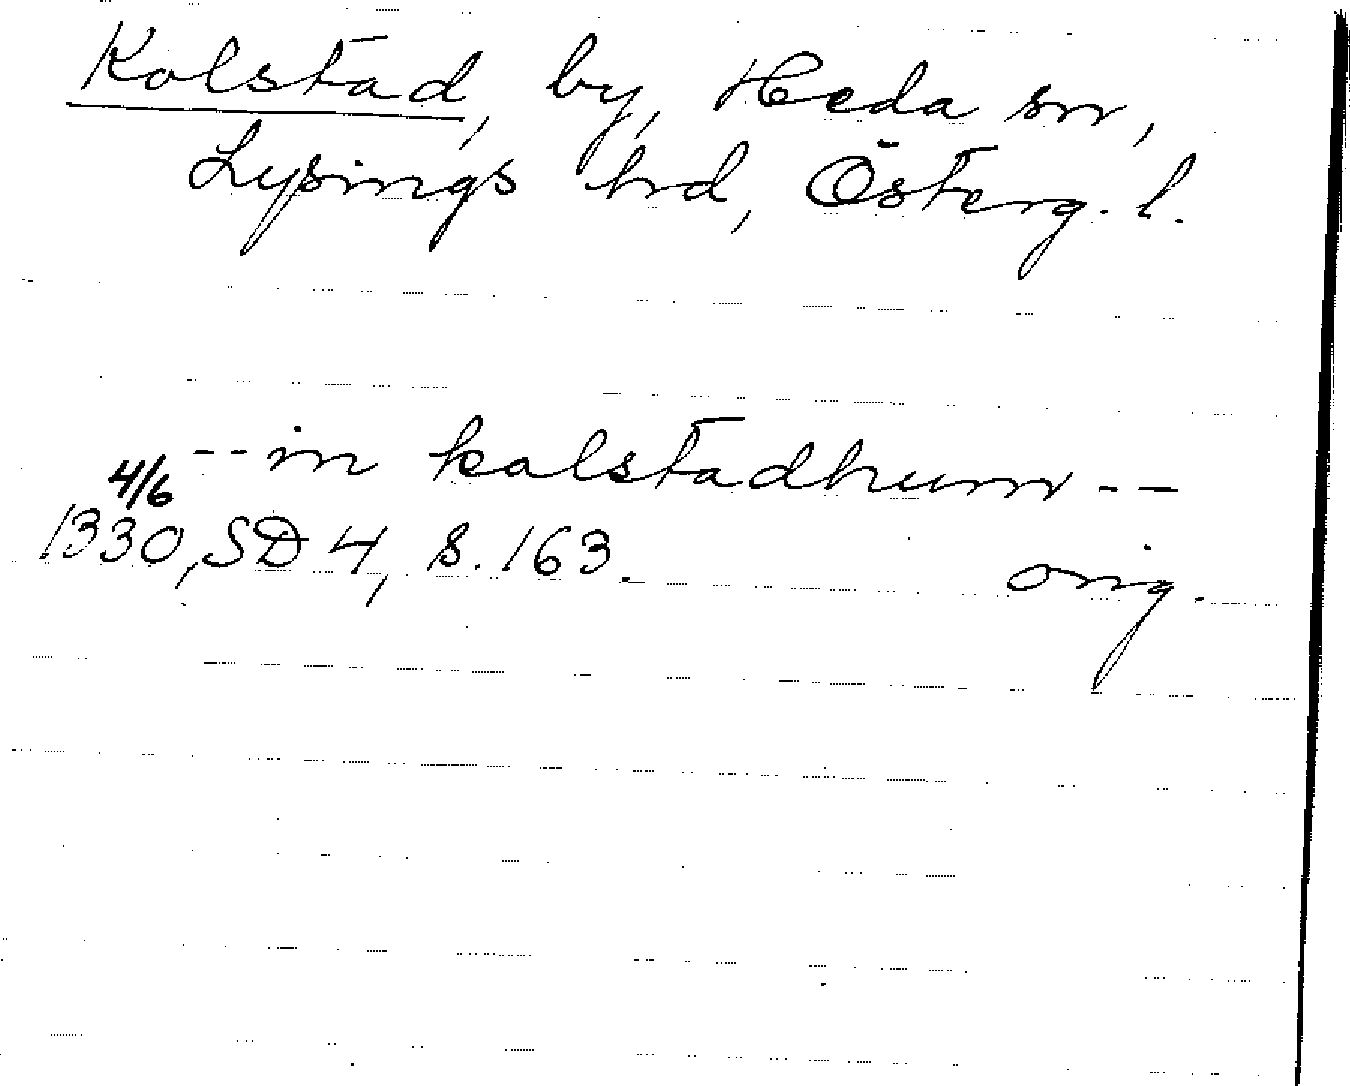 Kolstad, by, Heda sn,
Lysings hd, Österg. l.
-- in kalstadhum --
4/6
1330, SD 4, s. 163. orig.